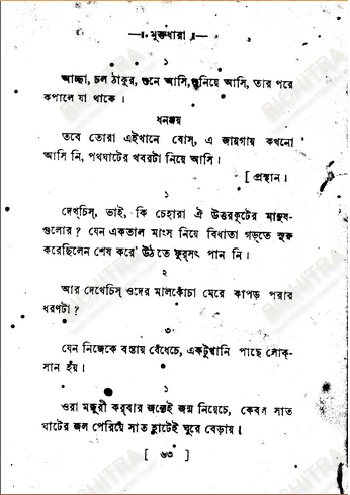 —॥ মুক্তধারা ॥—
১
আচ্ছা, চল ঠাকুর, শুনে আসি, শুনিয়ে আসি, তার পরে
কপালে যা থাকে।
ধনঞ্জয়
তবে তোরা এইখানে বোস্, এ জায়গায় কখনো
আসি নি, পথঘাটের খবরটা নিয়ে আসি।
[ প্রস্থান।
১
দেখ্‌চিস্, ভাই, কি চেহারা ঐ উত্তরকূটের মানুষ-
গুলোর? যেন একতাল মাংস নিয়ে বিধাতা গড়্‌তে সুরু
করেছিলেন শেষ করে' উঠ্‌তে ফুর্‌সৎ পান নি।
২
আর দেখেচিস্ ওদের মালকোঁচা মেরে কাপড় পরার
ধরণটা?
৩
যেন নিজেকে বস্তায় বেঁধেচে, একটুখানি পাছে লোক্-
সান হয়।
১
ওরা মজুরী কর্‌বার জন্যেই জন্ম নিয়েচে, কেবল সাত
ঘাটের জল পেরিয়ে সাত হাটেই ঘুরে বেড়ায়।
[ ৬৩ ]
BICHITRA
BICHITRA
BICHITRA
BICHITRA